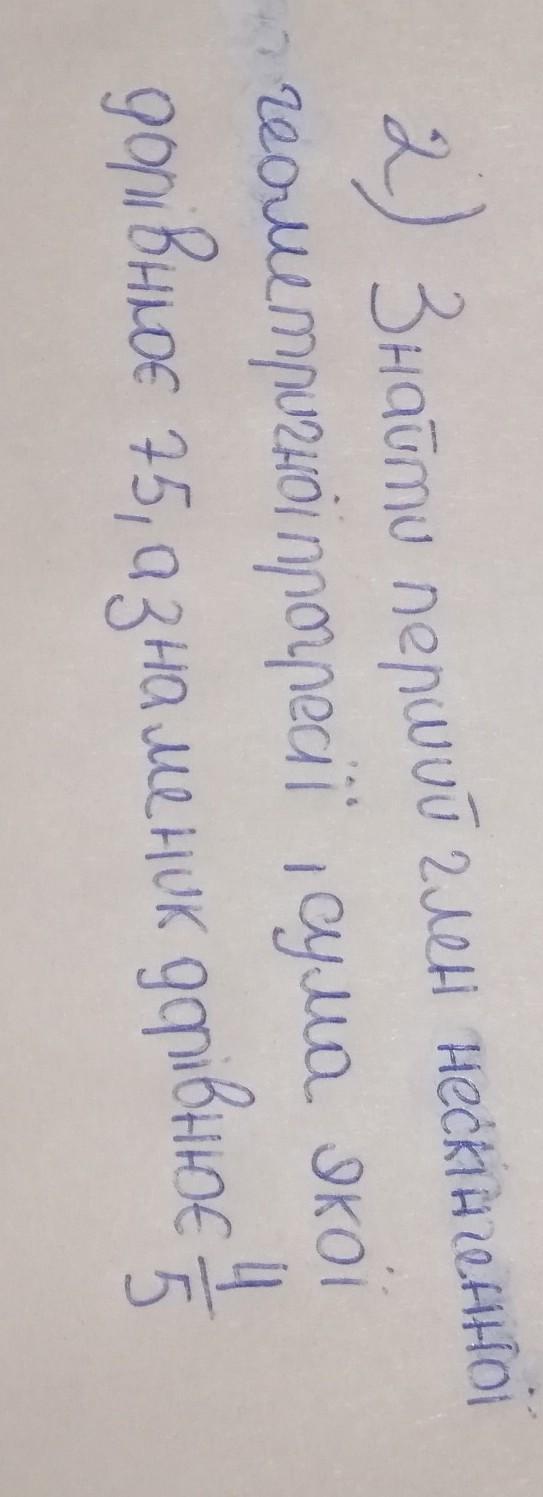 2) Знайти перший член нескінченної
геометричної прогресії, сума якої
дорівнює 75, а знаменик дорівнює 4/5